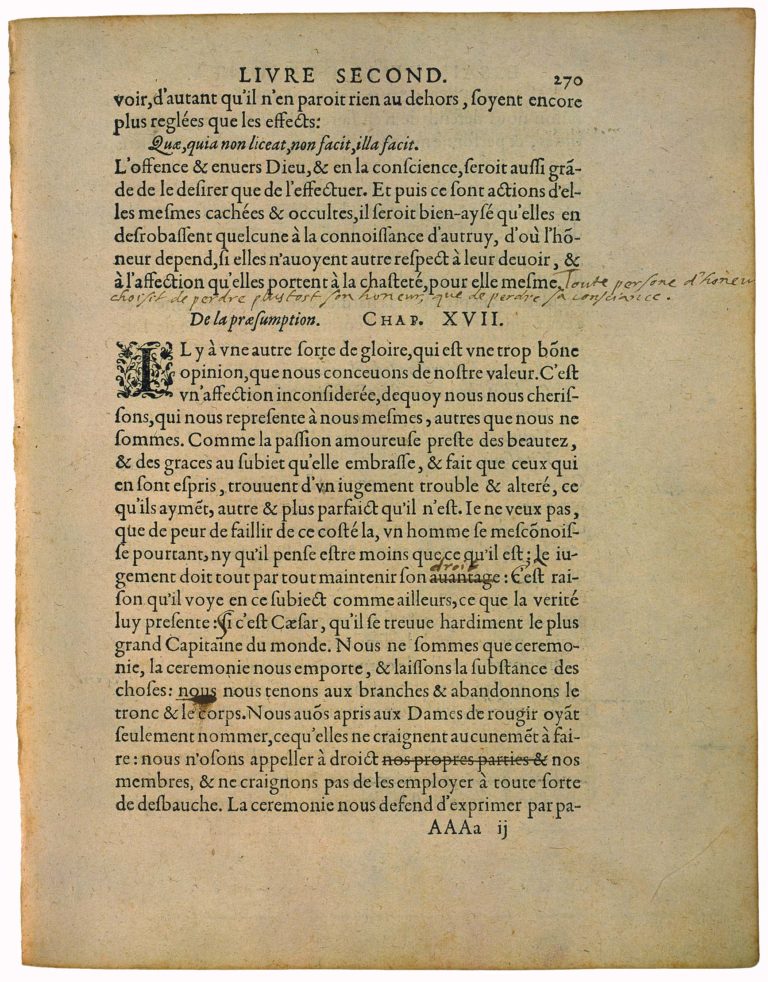 LIVRE SECOND. 270
voir,d'autant qu'il n'en paroit rien au dehors, ſoyent encore
plus reglées que les effects:
Quæ,quia non liceat,non facit,illa facit.
L'offence & enuers Dieu,& en la conſcience,ſeroit auſſi grã-
de de le deſirer que de l'effectuer. Et puis ce ſont actions d'el-
les meſmes cachées & occultes,il ſeroit bien-ayſé qu'elles en
deſrobaſſent quelcune à la connoiſſance d'autruy, d'où l'hõ-
neur depend,ſi elles n'auoyent autre reſpect à leur deuoir, &
à l'affection qu'elles portent à la chaſteté,pour elle meſme. Toute persone d'honeur
choisit de perdre plustost son honeur, que de perdre sa consciance.
De la præſumption. CHAP. XVII.
IL y à vne autre ſorte de gloire,qui eſt vne trop bõne
opinion,que nous conceuons de noſtre valeur. C'eſt
vn'affection inconſiderée,dequoy nous nous cheriſ-
ſons,qui nous repreſente à nous meſmes, autres que nous ne
ſommes. Comme la paſſion amoureuſe preſte des beautez,
& des graces au ſubiet qu'elle embraſſe, & fait que ceux qui
en ſont eſpris, trouuent d'vn iugement trouble & alteré, ce
qu'ils aymẽt, autre & plus parfaict qu'il n'eſt. Ie ne veux pas,
que de peur de faillir de ce coſté la, vn homme ſe meſcõnoiſ-
ſe pourtant, ny qu'il penſe eſtre moins que ce qu'il eſt; le iu-
droit
gement doit tout par tout maintenir ſon auantage: C'eſt rai-
ſon qu'il voye en ce ſubiect comme ailleurs,ce que la verité
luy preſente: Si c'eſt Cæſar, qu'il ſe treuue hardiment le plus
grand Capitaine du monde. Nous ne ſommes que ceremo-
nie, la ceremonie nous emporte, & laiſſons la ſubſtance des
choſes: nous nous tenons aux branches & abandonnons le
tronc & le corps. Nous auõs apris aux Dames de rougir oyãt
ſeulement nommer, cequ'elles ne craignent aucunemẽt à fai-
re: nous n'oſons appeller à droict nos propres parties & nos
membres, & ne craignons pas de les employer à toute ſorte
de desbauche. La ceremonie nous defend d'exprimer par pa-
AAAa ij